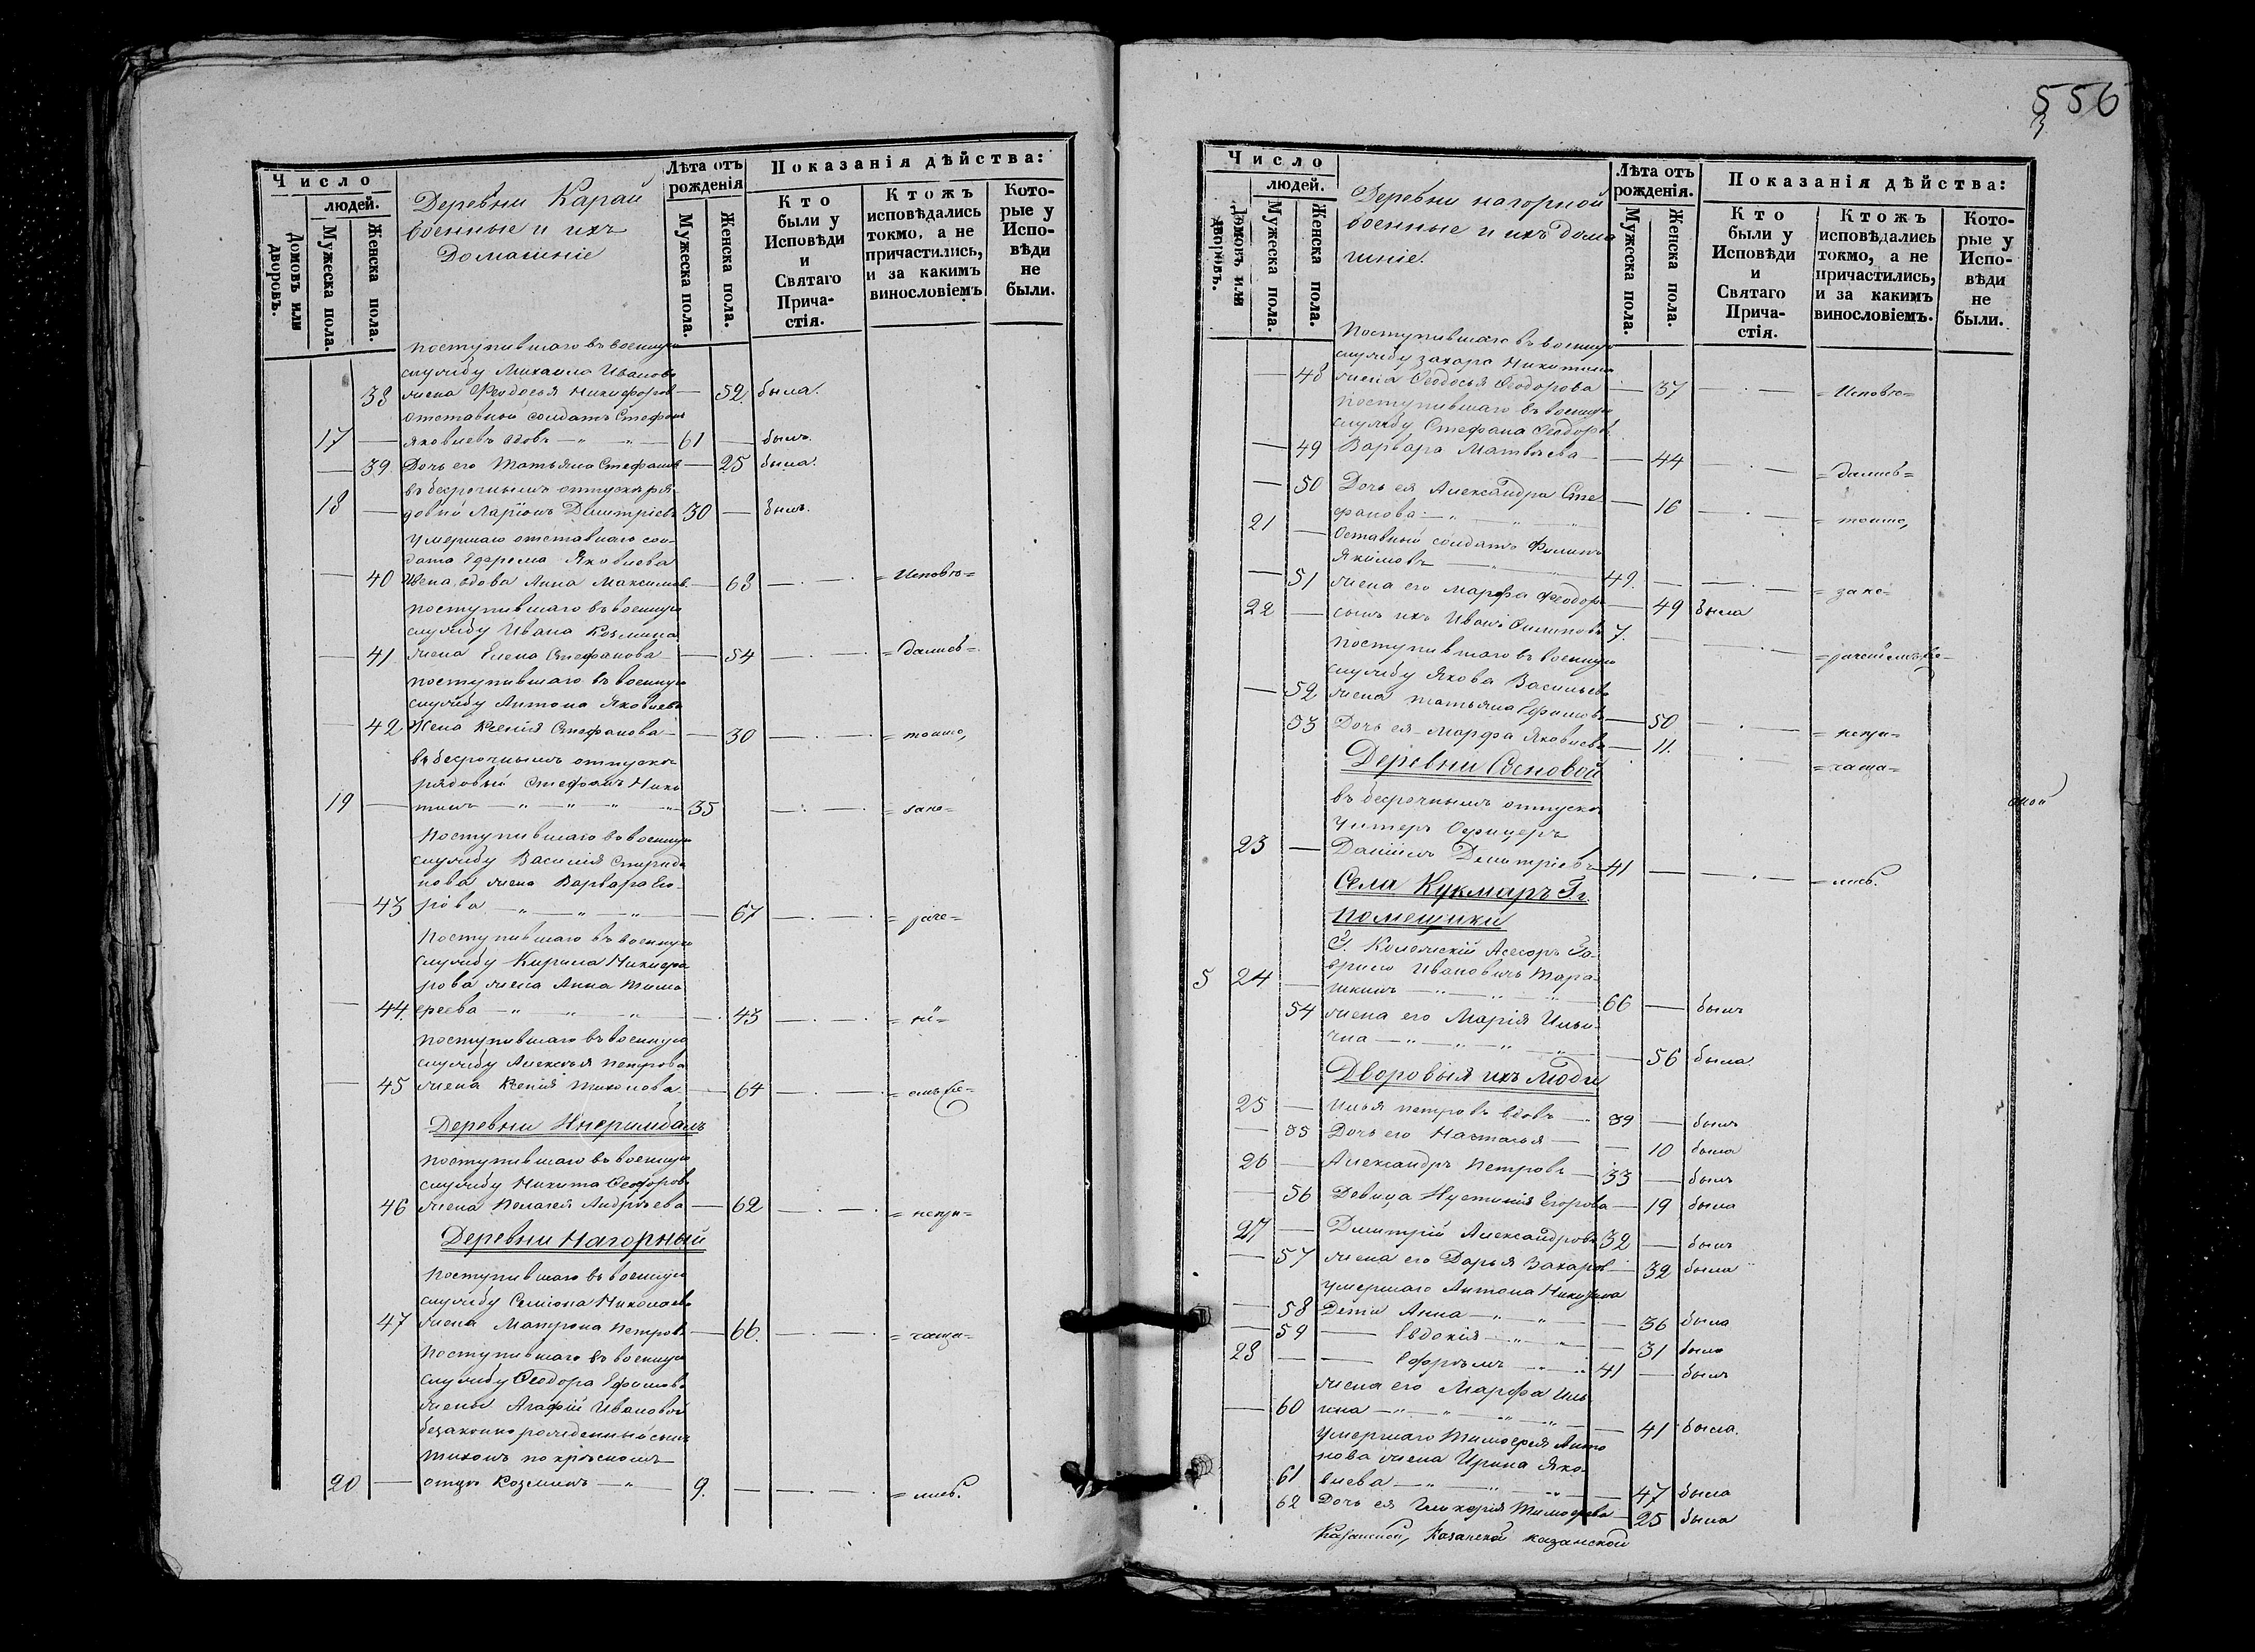 556
Число
людей.
Домовъ или дворовъ.
Мужеска пола.
Женска пола.
Деревни Карай
военные и ихъ
Домашніе
Лѣта отъ рожденія
Мужеска пола.
Женска пола.
Показанія дѣйства:
Кто были у Исповѣди и Святаго Причастія.
Ктожъ исповѣдались токмо, а не причастились, и за какимъ винословіемъ
Которые у Исповѣди не были.
поступившаго въ военную
службу Михаила Иванова
38 жена Феодосья Никифоров — 52. была.
отставный солдатъ Стефанъ
17 — Яковлевъ вдовъ — 61 — былъ.
— 39 Дочь его Татьяна Стефанов — 25 была.
въ безсрочнымъ отпуску ря-
18 — довый Ларіонъ Димитріевъ 30 — былъ.
умершаго отставнаго сол-
дата Ефрема Яковлева
— 40 Жена вдова Анна Максимов. — 63 — = Исповѣ=
поступившаго въ военную
службу Ивана Козмина
— 41 жена Елена Стефанова — 54 — = дались=
поступившаго въ военную
службу Антона Яковлева
— 42 Жена Ксенія Стефанова — 30 — = токмо,
въ безсрочнымъ отпуску
рядовый Стефанъ Ники
19 — тинъ — 35 — = зане=
поступившаго въ военную
службу Василія Спиридо
нова жена Варвара Его-
— 43 рова — 67 — = раче=
поступившаго въ военную
службу Кирила Никифо
рова жена Анна Тимо
— 44. феева — 43 — = ні=
поступившаго въ военную
службу Алексѣя Петрова
— 45 жена Ксенія Тихонова — 64 —
Деревни
поступившаго въ военную
службу Никита Феодоров
46 жена Пелагея Андрѣева — 62 — = непри=
Деревни Нагорный
поступившаго въ военную
службу Семіона Николаев
47 жена Матрона Петров — 66. — = чаща=
поступившаго въ военную
службу Феодора Ефимова
жены Агафіи Ивановой
беззаконнорожденный сынъ
Тихонъ по крѣсномъ
20 — отцу Козминъ — 9. — = лись.
Число
людей.
Домовъ или дворовъ.
Мужеска пола.
Женска пола.
Деревни нагорной
военные и ихъ дома
шніе.
Лѣта отъ рожденія.
Мужеска пола.
Женска пола.
Показанія дѣйства:
Кто были у Исповѣди и Святаго Причастія.
Ктожъ исповѣдались токмо, а не причастились, и за какимъ винословіемъ.
Которые у Исповѣди не были.
поступившаго въ военную
службу Захара Никитина
— 48 жена Феодосья Феодорова — 37 — = Исповѣ=
поступившаго въ военную
службу Стефана Феодоров
— 49 Варвара Матвѣева — 44 — = дались=
— 50 Дочь ея Александра Сте
фанова — 16 — = токмо,
21 — Оставный солдатъ Филипъ
Якимовъ — 49. — = зане=
— 51 жена его Марфа Феодор — 49 была
22 — сынъ ихъ Иванъ Филиповъ 7. —
поступившаго въ военную
службу Якова Васильева
— 52 жена Татьяна Ефимов — 50 — = непри=
53 Дочь ея Марфа Яковлев — 11. — = чаща=
Деревни Сосновой
въ безсрочнымъ отпуску
Унтеръ Офицеръ
23 — Даніилъ Димитріевъ 41 — — лись.
Села Кукмаръ Гг.
помещики
Г. Колежскій Асесоръ Га-
5 24 — врило Ивановичъ Тара-
шкинъ — 66 — былъ
54 жена его Марія Ильи-
чна — 56 была.
Дворовыя ихъ люди
25 — Илья Петровъ вдовъ — 39 — былъ
— 55 Дочь его Настасья — 10 была
26 — Александръ Петровъ — 33 — былъ
— 56 Девица Иустинія Егорова — 19 была
27 — Димитрій Александровъ 32 — былъ
— 57 жена его Дарья Захаров — 32 была
умершаго Антона
— 58 Дети Анна — 36 была
— 59 — Евдокія — 31 была
28 — — Ефремъ — 41 — былъ
жена его Марфа Иль
— 60 ина — 41 была.
умершаго Тимофея Анто
нова жена Ирина Яко-
61 влева — 47 была
62 Дочь ея Гликерія Тимофева — 25 была
Казанской, Казанской казанской